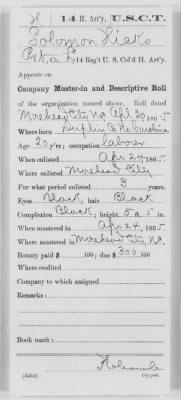 H 14 H. Art'y. U.S.C.T.
Solomon Hicks
Pvt, Co. F, 14 Reg't U. S. Col'd H. Art'y.
Appears on
Company Muster-in and Descriptive Roll
of the organization named above. Roll dated
Morehead City N.C. Apl 30, 1865.
Where born Duplin Co. N. Carolina
Age 20 y'rs; occupation laborer
When enlisted Apr 24, 1865.
Where enlisted Morehead City
For what period enlisted 3 years.
Eyes Black, hair Black
Complexion Black; height 5 ft. 5 in.
When mustered in Apr 24, 1865.
Where mustered in Morehead City N.C.
Bounty paid $ 100; due $ 300 100
Where credited
Company to which assigned
Remarks:
Book mark:
Holcomb
Copyist.